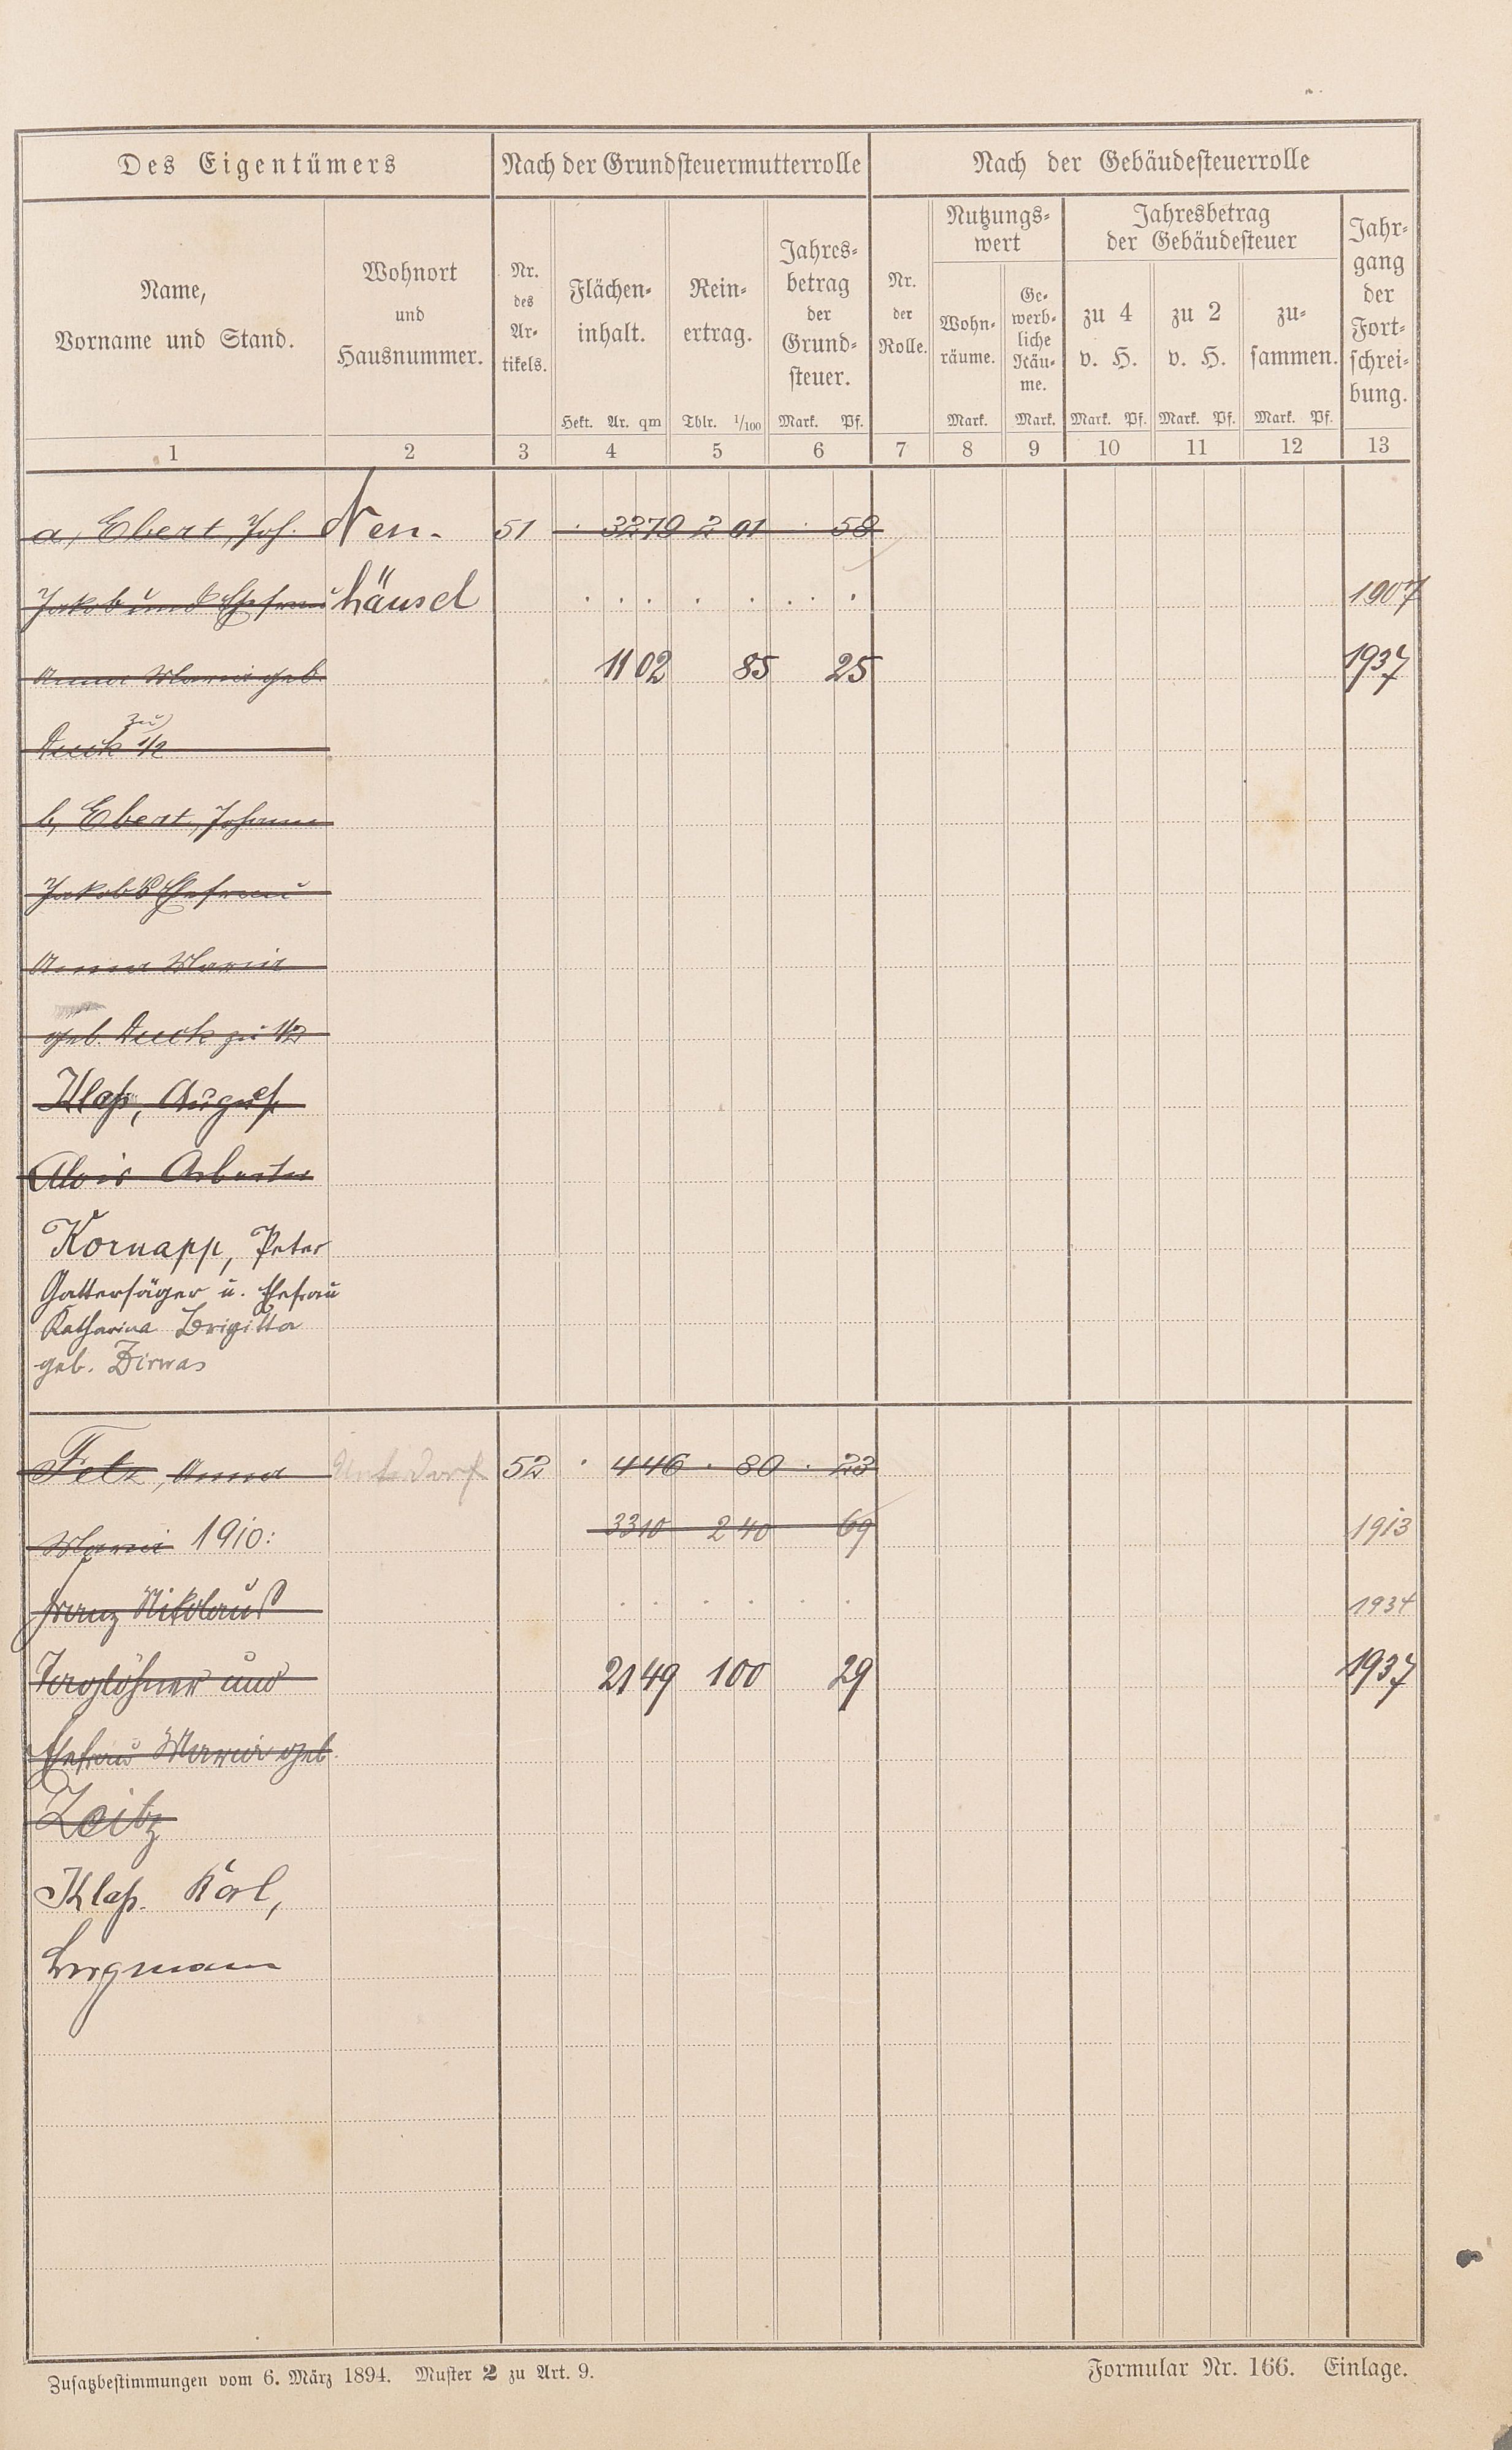 Des Eigentümers
Nach der Grundsteuermutterrolle
Nach der Gebäudesteuerrolle
Name,
Vorname und Stand.
Wohnort
und
Hausnummer.
Nr.
des
Ar-
tikels.
Flächen-
inhalt.
Hekt. Ar. qm
Rein-
ertrag.
Thlr. 1/100
Jahres-
betrag
der
Grund-
steuer.
Mark. Pf.
Nr.
der
Rolle.
Nutzungs-
wert
Wohn-
räume.
Mark.
Ge-
werb-
liche
Räu-
me.
Mark.
Jahresbetrag
der Gebäudesteuer
zu 4
v. H.
Mark. Pf.
zu 2
v. H.
Mark. Pf.
zu-
sammen.
Mark. Pf.
Jahr-
gang
der
Fort-
schrei-
bung.
1 2 3 4 5 6 7 8 9 10 11 12 13
a, Ebert, Joh. Neu- 51 · 32 79 2 01 · 58
Jakob und Ehefrau häusel · · · · · · · · 1907
Anna Maria geb 11 02 85 25 1937
zu
Duck 1/2
b, Ebert, Johann
Jakob Ehefrau
Anna Maria
geb. Duck zu 1/2
Klaß, August
Alois Arbeiter
Kornapp, Peter
Gattersäger u. Ehefrau
Katharina Brigitta
geb. Zirwas
Felz, Anna 52 · 4 46 · 80 · 23
Maria 1910: 33 10 2 40 69 1913
Franz Nikolaus · · · · · · · 1934
Taglöhner und 21 49 1 00 29 1937
Ehefrau Maria geb.
Zeitz
Klaß. Karl,
Bergmann
Zusatzbestimmungen vom 6. März 1894. Muster 2 zu Art. 9.
Formular Nr. 166. Einlage.